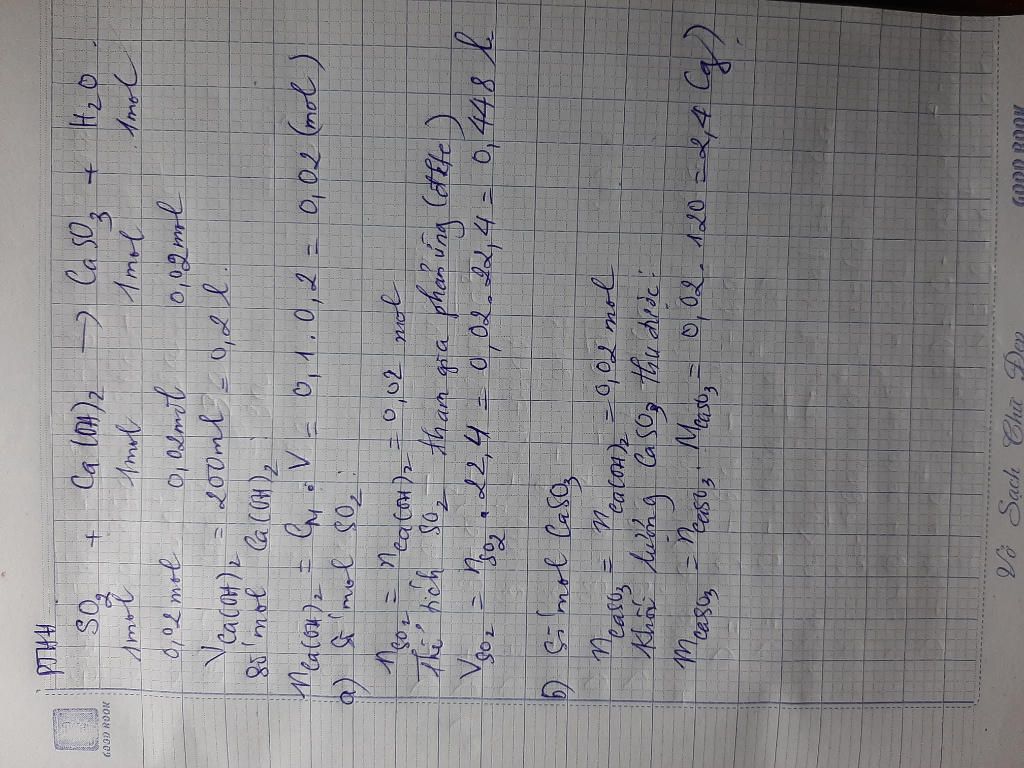 PTHH
SO2 + Ca(OH)2 → CaSO3 + H2O.
1mol 1mol 1mol 1mol
0,02mol 0,02mol 0,02mol
VCa(OH)2 = 200ml = 0,2 l.
Số mol Ca(OH)2
nCa(OH)2 = CM. V = 0,1. 0,2 = 0,02 (mol)
a) Số mol SO2:
nSO2 = nCa(OH)2 = 0,02 mol
Thể tích SO2 tham gia phản ứng (đktc)
VSO2 = nSO2 . 22,4 = 0,02. 22,4 = 0,448 l
b) Số mol CaSO3
nCaSO3 = nCa(OH)2 = 0,02 mol
Khối lượng CaSO3 thu được:
mCaSO3 = nCaSO3. MCaSO3 = 0,02. 120 = 2,4 (g)
GOOD BOOK
GOOD BOOK
Vở Sạch Chữ Đẹp